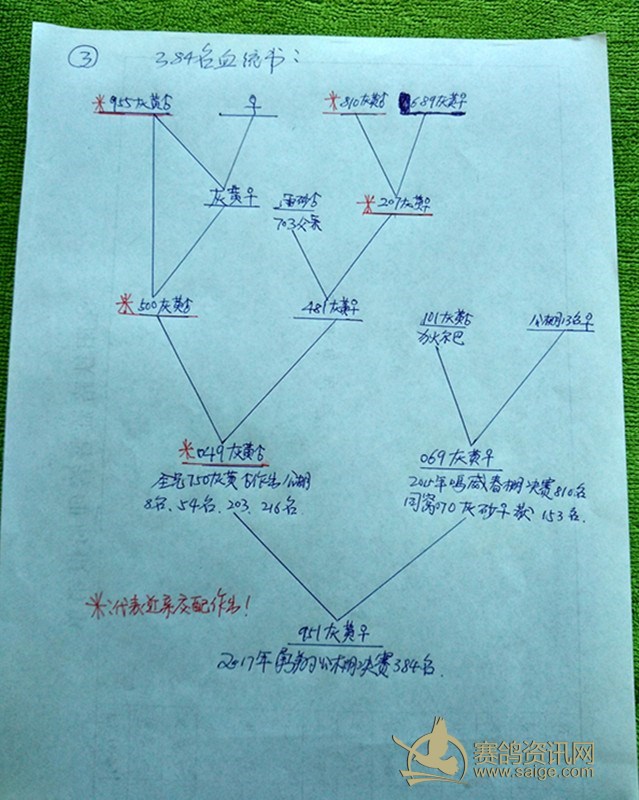 ③ 384名血统书:
※955灰黄♂
♀
※810灰黄♂
689灰黄♀
灰黄♀
雨砂♂
703公案
※207灰黄♀
※500灰黄♂
481灰黄♀
101灰黄♂
公棚13名♀
※049灰黄♂
069灰黄♀
全兄750灰黄♂作出公棚
8名、54名、203、216名
2015年鸣威春棚决赛810名
同窝070灰砂♀获153名.
※:代表近亲交配作出!
951灰黄♀
2017年 公棚决赛384名.
赛鸽资讯网
www.saige.com